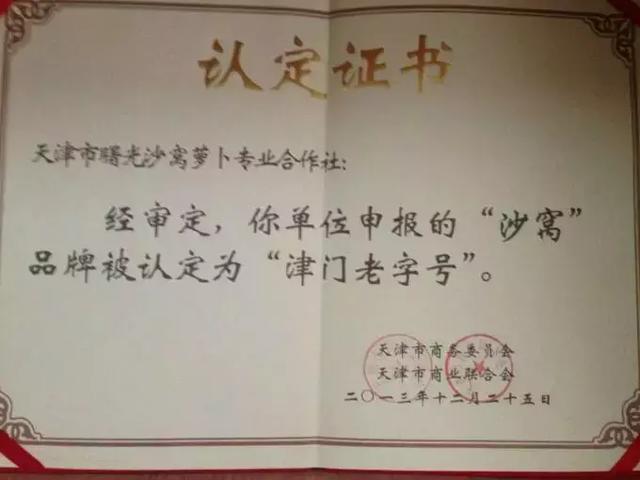 认定证书
天津市曙光沙窝萝卜专业合作社：
经审定，你单位申报的“沙窝”
品牌被认定为“津门老字号”。
天津市商务委员会
天津市商业联合会
二〇一三年十二月二十五日